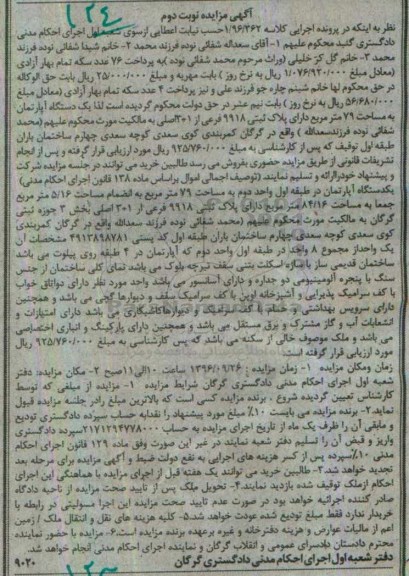 ۱۲۴
آگهی مزایده نوبت دوم
نظر به اینکه در پرونده اجرایی کلاسه ۱/۹۶/۳۶۲ حسب نیابت اعطایی ازسوی شعبه اول اجرای احکام مدنی
دادگستری گنبد محکوم علیهم ۱- آقای سعداله شفائی نوده فرزند محمد ۲- خانم شیما شفائی نوده فرزند
محمد ۳- خانم گل کز خلیلی (وراث مرحوم محمد شفائی نوده) به پرداخت ۷۶ عدد سکه تمام بهار آزادی
(معادل مبلغ ۱/۰۷۶/۹۲۰/۰۰۰ ریال به نرخ روز) بابت مهریه و مبلغ ۲۵/۰۰۰/۰۰۰ ریال بابت حق الوکاله
در حق محکوم لها خانم شبنم چاره جو فرزند علی و نیز پرداخت ۴ عدد سکه تمام بهار آزادی (معادل مبلغ
۵۶/۶۸۰/۰۰۰ ریال به نرخ روز) بابت نیم عشر در حق دولت محکوم گردیده است لذا یک دستگاه آپارتمان
به مساحت ۷۹ متر مربع دارای پلاک ثبتی ۹۹۱۸ فرعی از ۳۰۱ اصلی به مالکیت مورث محکوم علیهم (محمد
شفائی نوده فرزند سعدالله) واقع در گرگان کمربندی کوی سعدی کوچه سعدی چهارم ساختمان باران
طبقه اول توقیف که پس از کارشناسی به مبلغ ۹۲۵/۷۶۰/۰۰۰ ریال مورد ارزیابی قرار گرفته و پس از انجام
تشریفات قانونی از طریق مزایده حضوری بفروش می رسد طالبین خرید می توانند در جلسه مزایده شرکت
و پیشنهاد خود را ارائه و تسلیم نمایند. (توصیف اجمالی اموال براساس ماده ۱۳۸ قانون اجرای احکام مدنی)
یکدستگاه آپارتمان در طبقه اول واحد دوم به مساحت ۷۹ متر مربع به انضمام مساحت ۵/۱۶ متر مربع
جمعا به مساحت ۸۴/۱۶ متر مربع دارای پلاک ثبتی ۹۹۱۸ فرعی از ۳۰۱ اصلی بخش ۳ حوزه ثبتی
گرگان به مالکیت مورث محکوم علیهم (محمد شفائی نوده فرزند سعدالله واقع در گرگان کمربندی
کوی سعدی کوچه سعدی چهارم ساختمان باران طبقه اول کد پستی ۴۹۱۳۸۹۸۷۸۱ مشخصات آن
یک واحد از مجموع ۸ واحد در طبقه اول واحد دوم که آپارتمان در ۴ طبقه روی پیلوت می باشد
ساختمان قدیمی ساز با سازه اسکلت بتنی سقف تیرچه بلوک می باشد نمای کلی ساختمان از جنس
سنگ با پنجره آلومینیومی دو جداره و دارای آسانسور می باشد واحد مورد نظر دارای دو اتاق خواب
با کف سرامیک پذیرایی و آشپزخانه اوپن با کف سرامیک سقف و دیوارها گچی می باشد و همچنین
دارای سرویس بهداشتی و حمام با کف سرامیک و دیوارها کاشیکاری می باشد دارای امتیازات و
انشعابات آب و گاز مشترک و برق مستقل می باشد و همچنین دارای پارکینگ و انباری اختصاصی
می باشد و ملک موصوف خالی از سکنه می باشد که پس کارشناسی به مبلغ ۹۲۵/۷۶۰/۰۰۰ ریال
مورد ارزیابی قرار گرفته است.
زمان ومکان مزایده ۱- زمان مزایده: ۱۳۹۶/۰۹/۲۶ ساعت ۱۰ الی ۱۱ صبح ۲- مکان مزایده: دفتر
شعبه اول اجرای احکام مدنی دادگستری گرگان شرایط مزایده ۱- مزایده از مبلغی که توسط
کارشناس تعیین گردیده شروع، برنده مزایده کسی است که بالاترین مبلغ را در جلسه مزایده قبول
نماید ۲- برنده مزایده می بایست ۱۰٪ مبلغ مورد پیشنهاد را نقدا به حساب سپرده دادگستری تودیع
و مابقی آن را ظرف یک ماه از تاریخ اجرای مزایده به حساب ۲۱۷۱۲۹۴۷۷۸۰۰۰ سپرده دادگستری
واریز و قبض آن را تسلیم دفتر شعبه نمایند در غیر این صورت وفق ماده ۱۲۹ قانون اجرای احکام
مدنی ۱۰٪ سپرده پس از کسر هزینه های اجرایی به نفع دولت ضبط و آگهی مزایده برای مرحله بعد
تجدید خواهد شد. ۳- طالبین خرید می توانند یک هفته قبل از اجرای مزایده با هماهنگی این اجرای
احکام از ملک توقیف شده بازدید نمایند. ۴- تحویل ملک پس از تایید صحت مزایده از ناحیه دادگاه
صادر کننده اجرائیه خواهد بود در صورت عدم تایید صحت مزایده این اجرا مسولیتی در رابطه با
خریدار ندارد فقط مبلغ تودیع شده عودت خواهد شد. ۵- کلیه هزینه های نقل و انتقال ملک / زمین
اعم از مالیات عوارض و هزینه دفترخانه و غیره برعهده برنده مزایده است. ۶- مزایده با حضور نماینده
محترم دادستان دادسرای عمومی و انقلاب گرگان و نماینده اجرای احکام مدنی انجام خواهد شد.
دفتر شعبه اول اجرای احکام مدنی دادگستری گرگان ۹۰۲۰